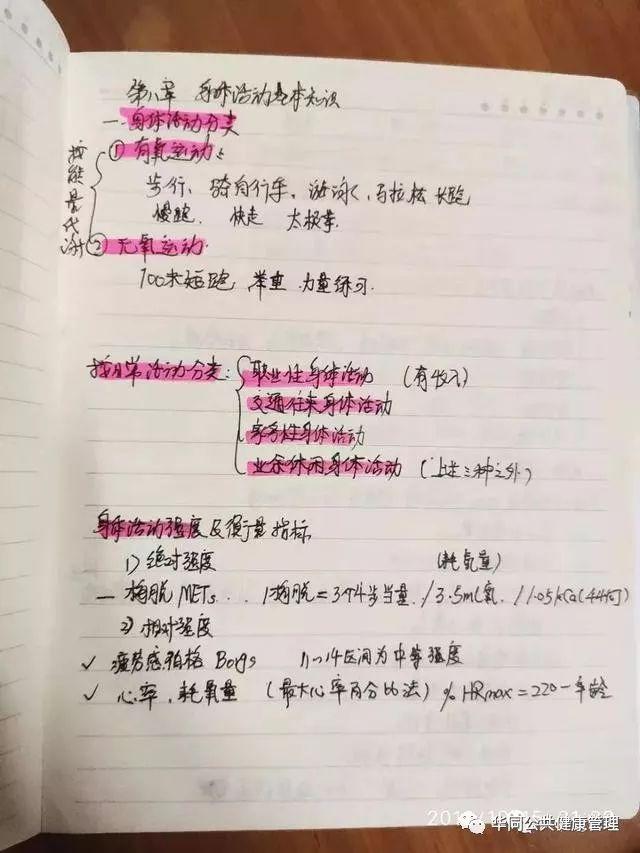 第八章 身体活动基本知识
一.身体活动分类
按能量代谢
① 有氧运动:
步行、骑自行车、游泳、马拉松 长跑
慢跑、快走 太极拳.
② 无氧运动.
100米短跑, 举重.力量练习.
按日常活动分类:
职业性身体活动 (有收入)
交通往来身体活动
家务性身体活动
业余休闲身体活动 (上述三种之外)
身体活动强度及衡量指标
1) 绝对强度 (耗氧量)
一 梅脱 METs... 1梅脱=3-4步当量./3.5ml氧./1.05kcal(4.4k)
2) 相对强度
✓ 疲劳感柏格 Borgs 11~14区间为中等强度
✓ 心率、耗氧量 (最大心率百分比法) % HRmax=220-年龄
华同公共健康管理